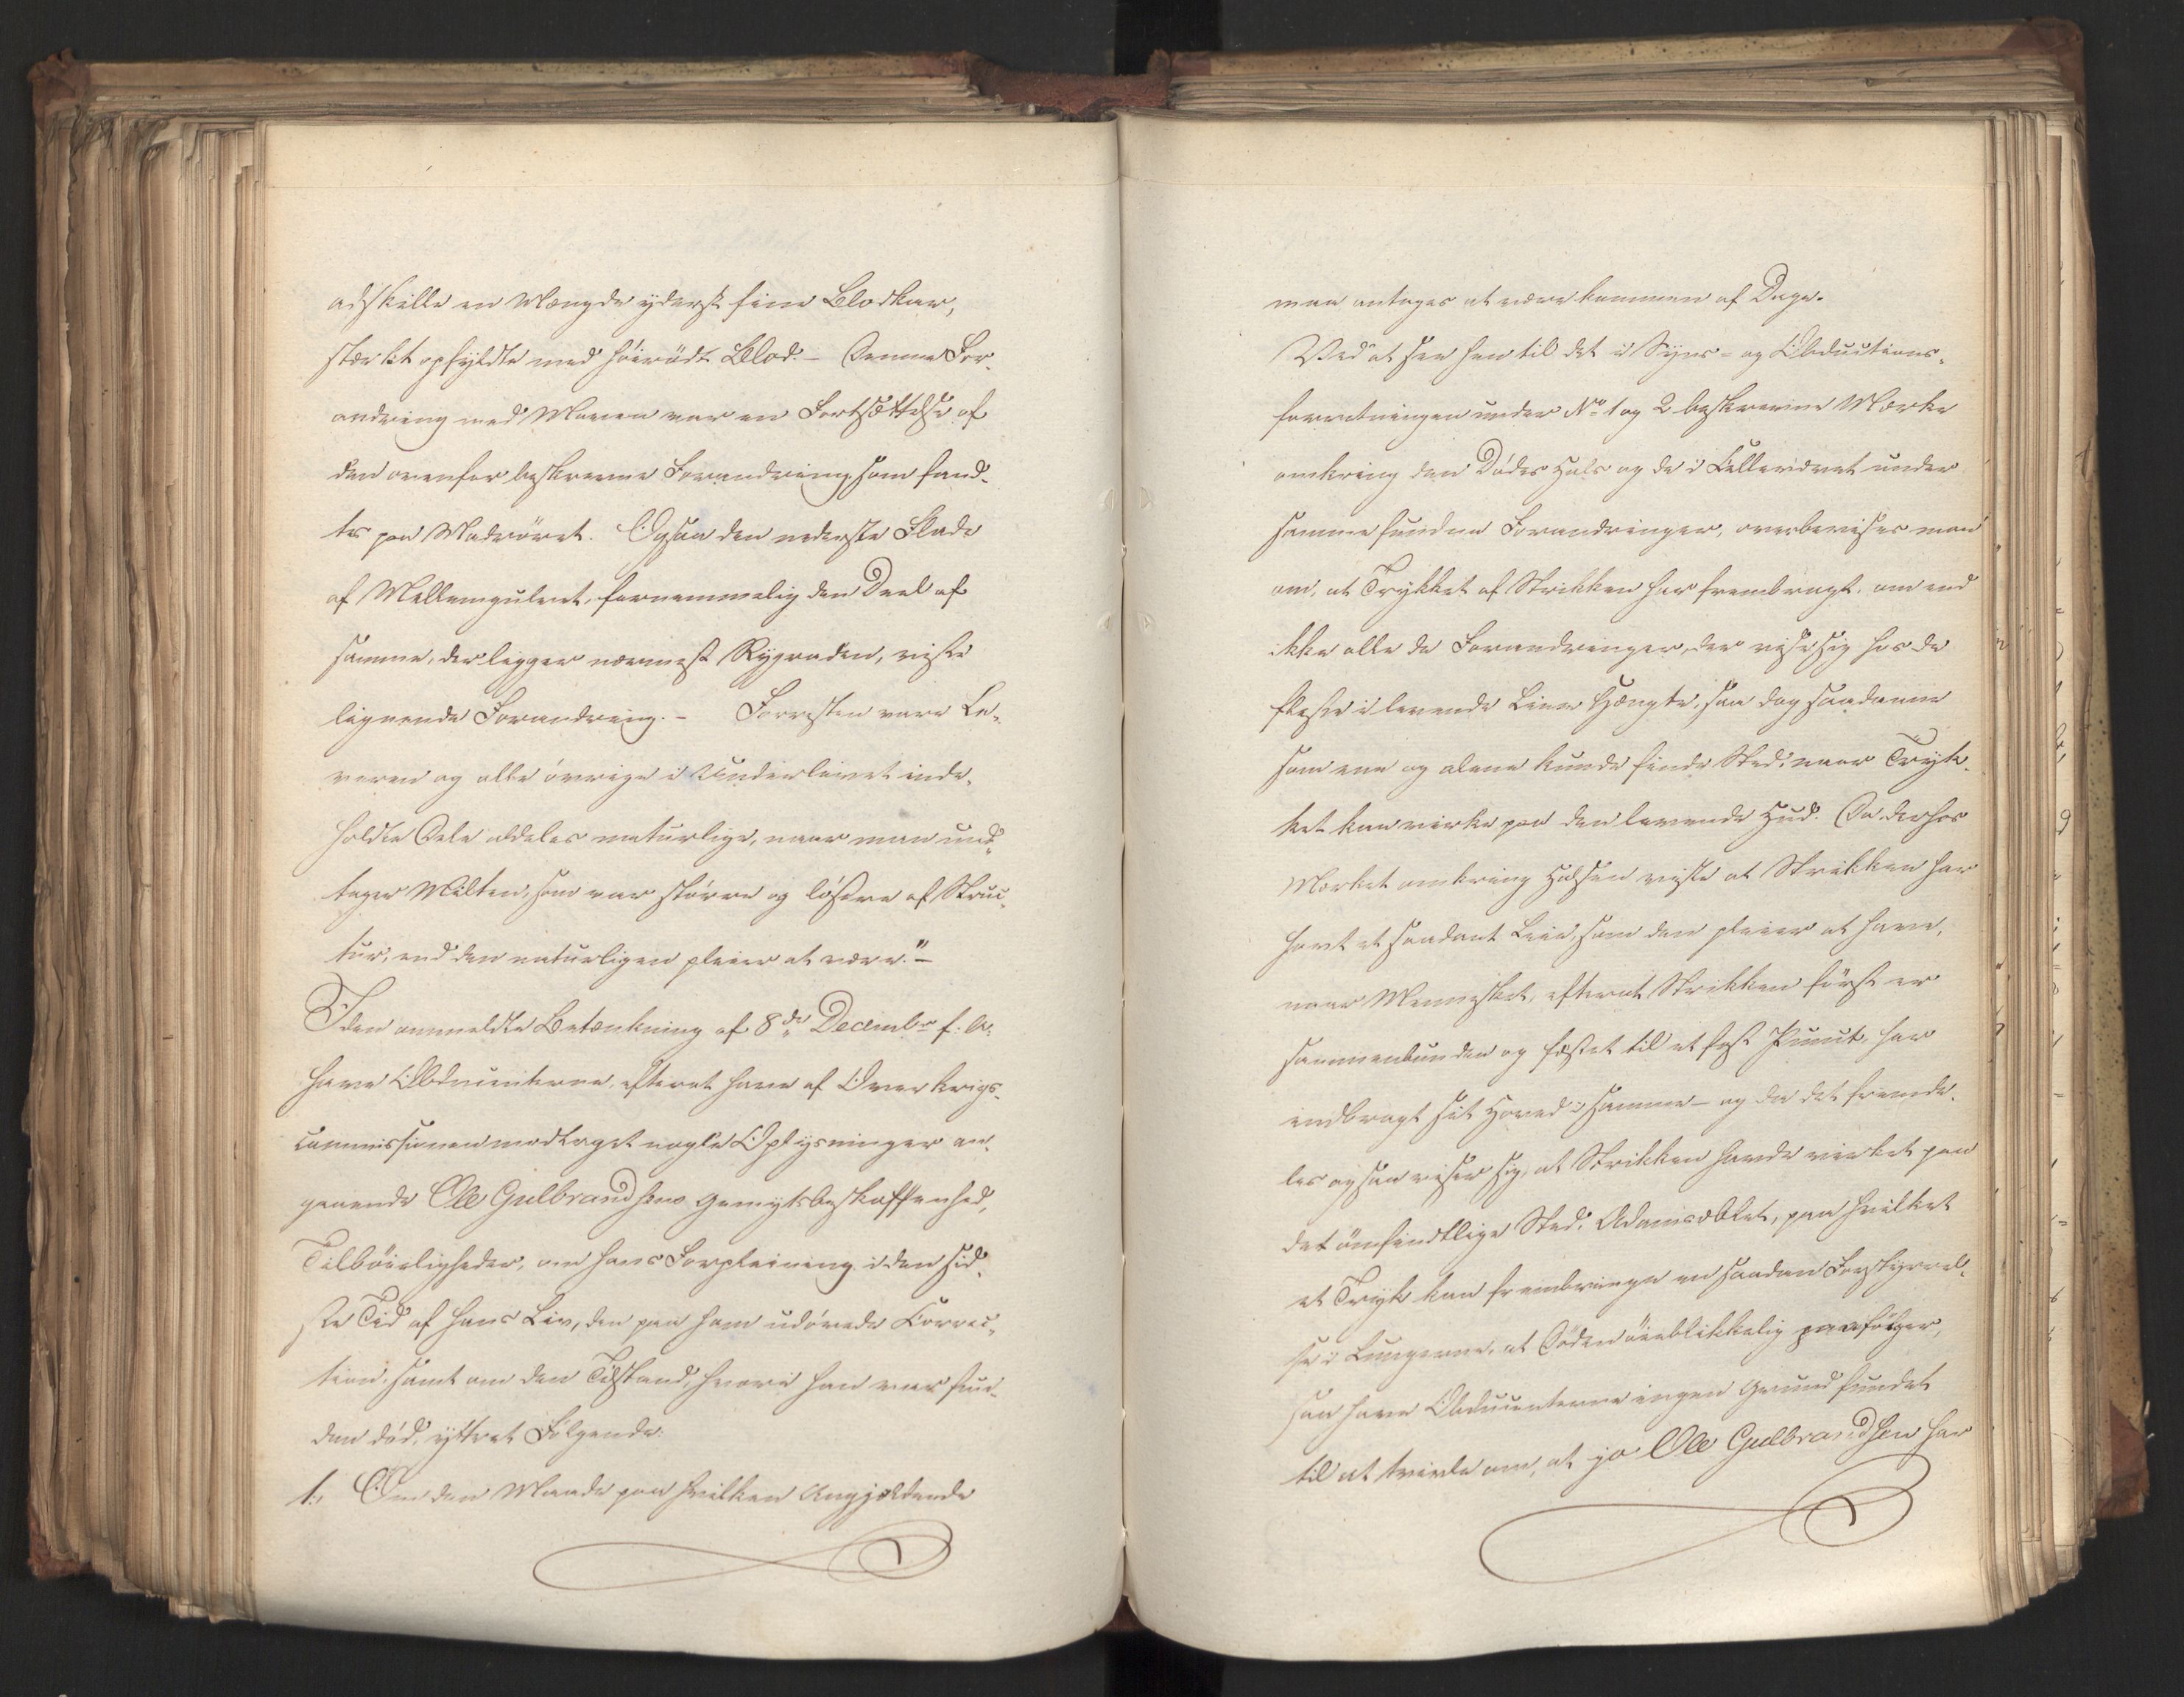 adskille en Mængde yderst fine Blodkar,
stærkt opfyldte med höirödt Blod. – Denne For-
andring ved Maven var en Fortsættelse af
den ovenfor beskrevne Forandring, som fand-
tes paa Madröret. Ogsaa den nederste Flade
af Mellemgulvet, fornemmelig den Deel af
samme, der ligger nærmest Rygraden, viste
lignende Forandring. – Forresten vare Le-
veren og alle övrige i Underlivet inde-
holdte Dele aldeles naturlige, naar man und-
tager Milten, som var större og lösere af Struc-
tur, end den naturligen pleier at være." –
I den anmeldte Betænkning af 8de Decembr f. A.
have Obducenterne, efterat have af Overkrigs-
commissionen modtaget nogle Oplysninger an-
gaaende Ole Gulbrandsens Gemytsbeskaffenhed,
Tilböieligheder, om hans Forpleining i den sid-
ste Tid af hans Liv, den paa ham udövede Correc-
tion, samt om den Tilstand, hvori han var fun-
den död, yttret Fölgende:
1., Om den Maade paa hvilken Angjældende
maa antages at være kommen af Dage.
Ved at see hen til det i Syns- og Obductions-
forretningen under No 1 og 2 beskrevne Mærke
omkring den Dödes Hals og de i Cellevævet under
samme fundne Forandringer, overbevises man
om, at Trykket af Strikken har frembragt, om end
ikke alle de Forandringer, der vise sig hos de
fleste i levende Live Hængte, saa dog saadanne
som ene og alene kunde finde Sted, naar Tryk-
ket kan virke paa den levende Hud. Da derhos
Mærket omkring Halsen viste at Strikken har
havt et saadant Leie, som den pleier at have,
naar Mennesket, efterat Strikken först er
sammenbunden og fæstet til et fast Punct, har
indbragt sit Hoved i samme – og da det fremde-
les ogsaa viser sig, at Strikken havde virket paa
det ömfindtlige Sted, Adamsæblet, paa hvilket
et Tryk kan frembringe en saadan Forstyrrel-
se i Lungerne, at Döden öieblikkelig paafölger,
saa have Obducenterne ingen Grund fundet
til at tvivle om, at jo Ole Gulbrandsen har